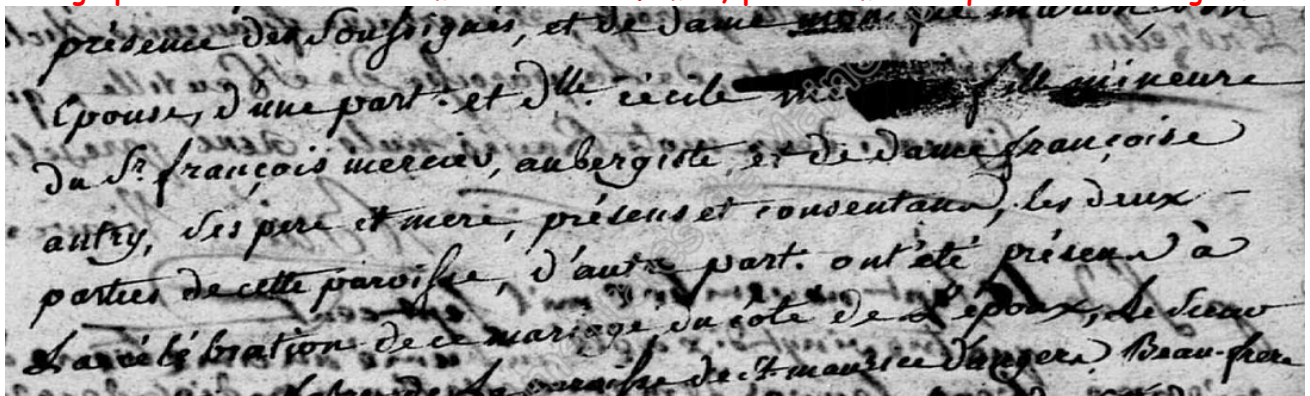 présence des soussignés, et de dame
Epouse, d'une part. et dlle. cécile fille mineure
du Sr. françois mercier, aubergiste, et de dame françoise
autry, ses pere et mere, présens et consentans, les deux
parties de cette paroisse, d'autre part. ont été présens à
La célébration de ce mariage du côté de L'époux, Le Sieur
paroisse de St. maurice d'angers, Beau-frere